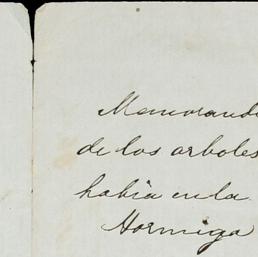 Memorand
de los arboles
habia en la
Hormiga